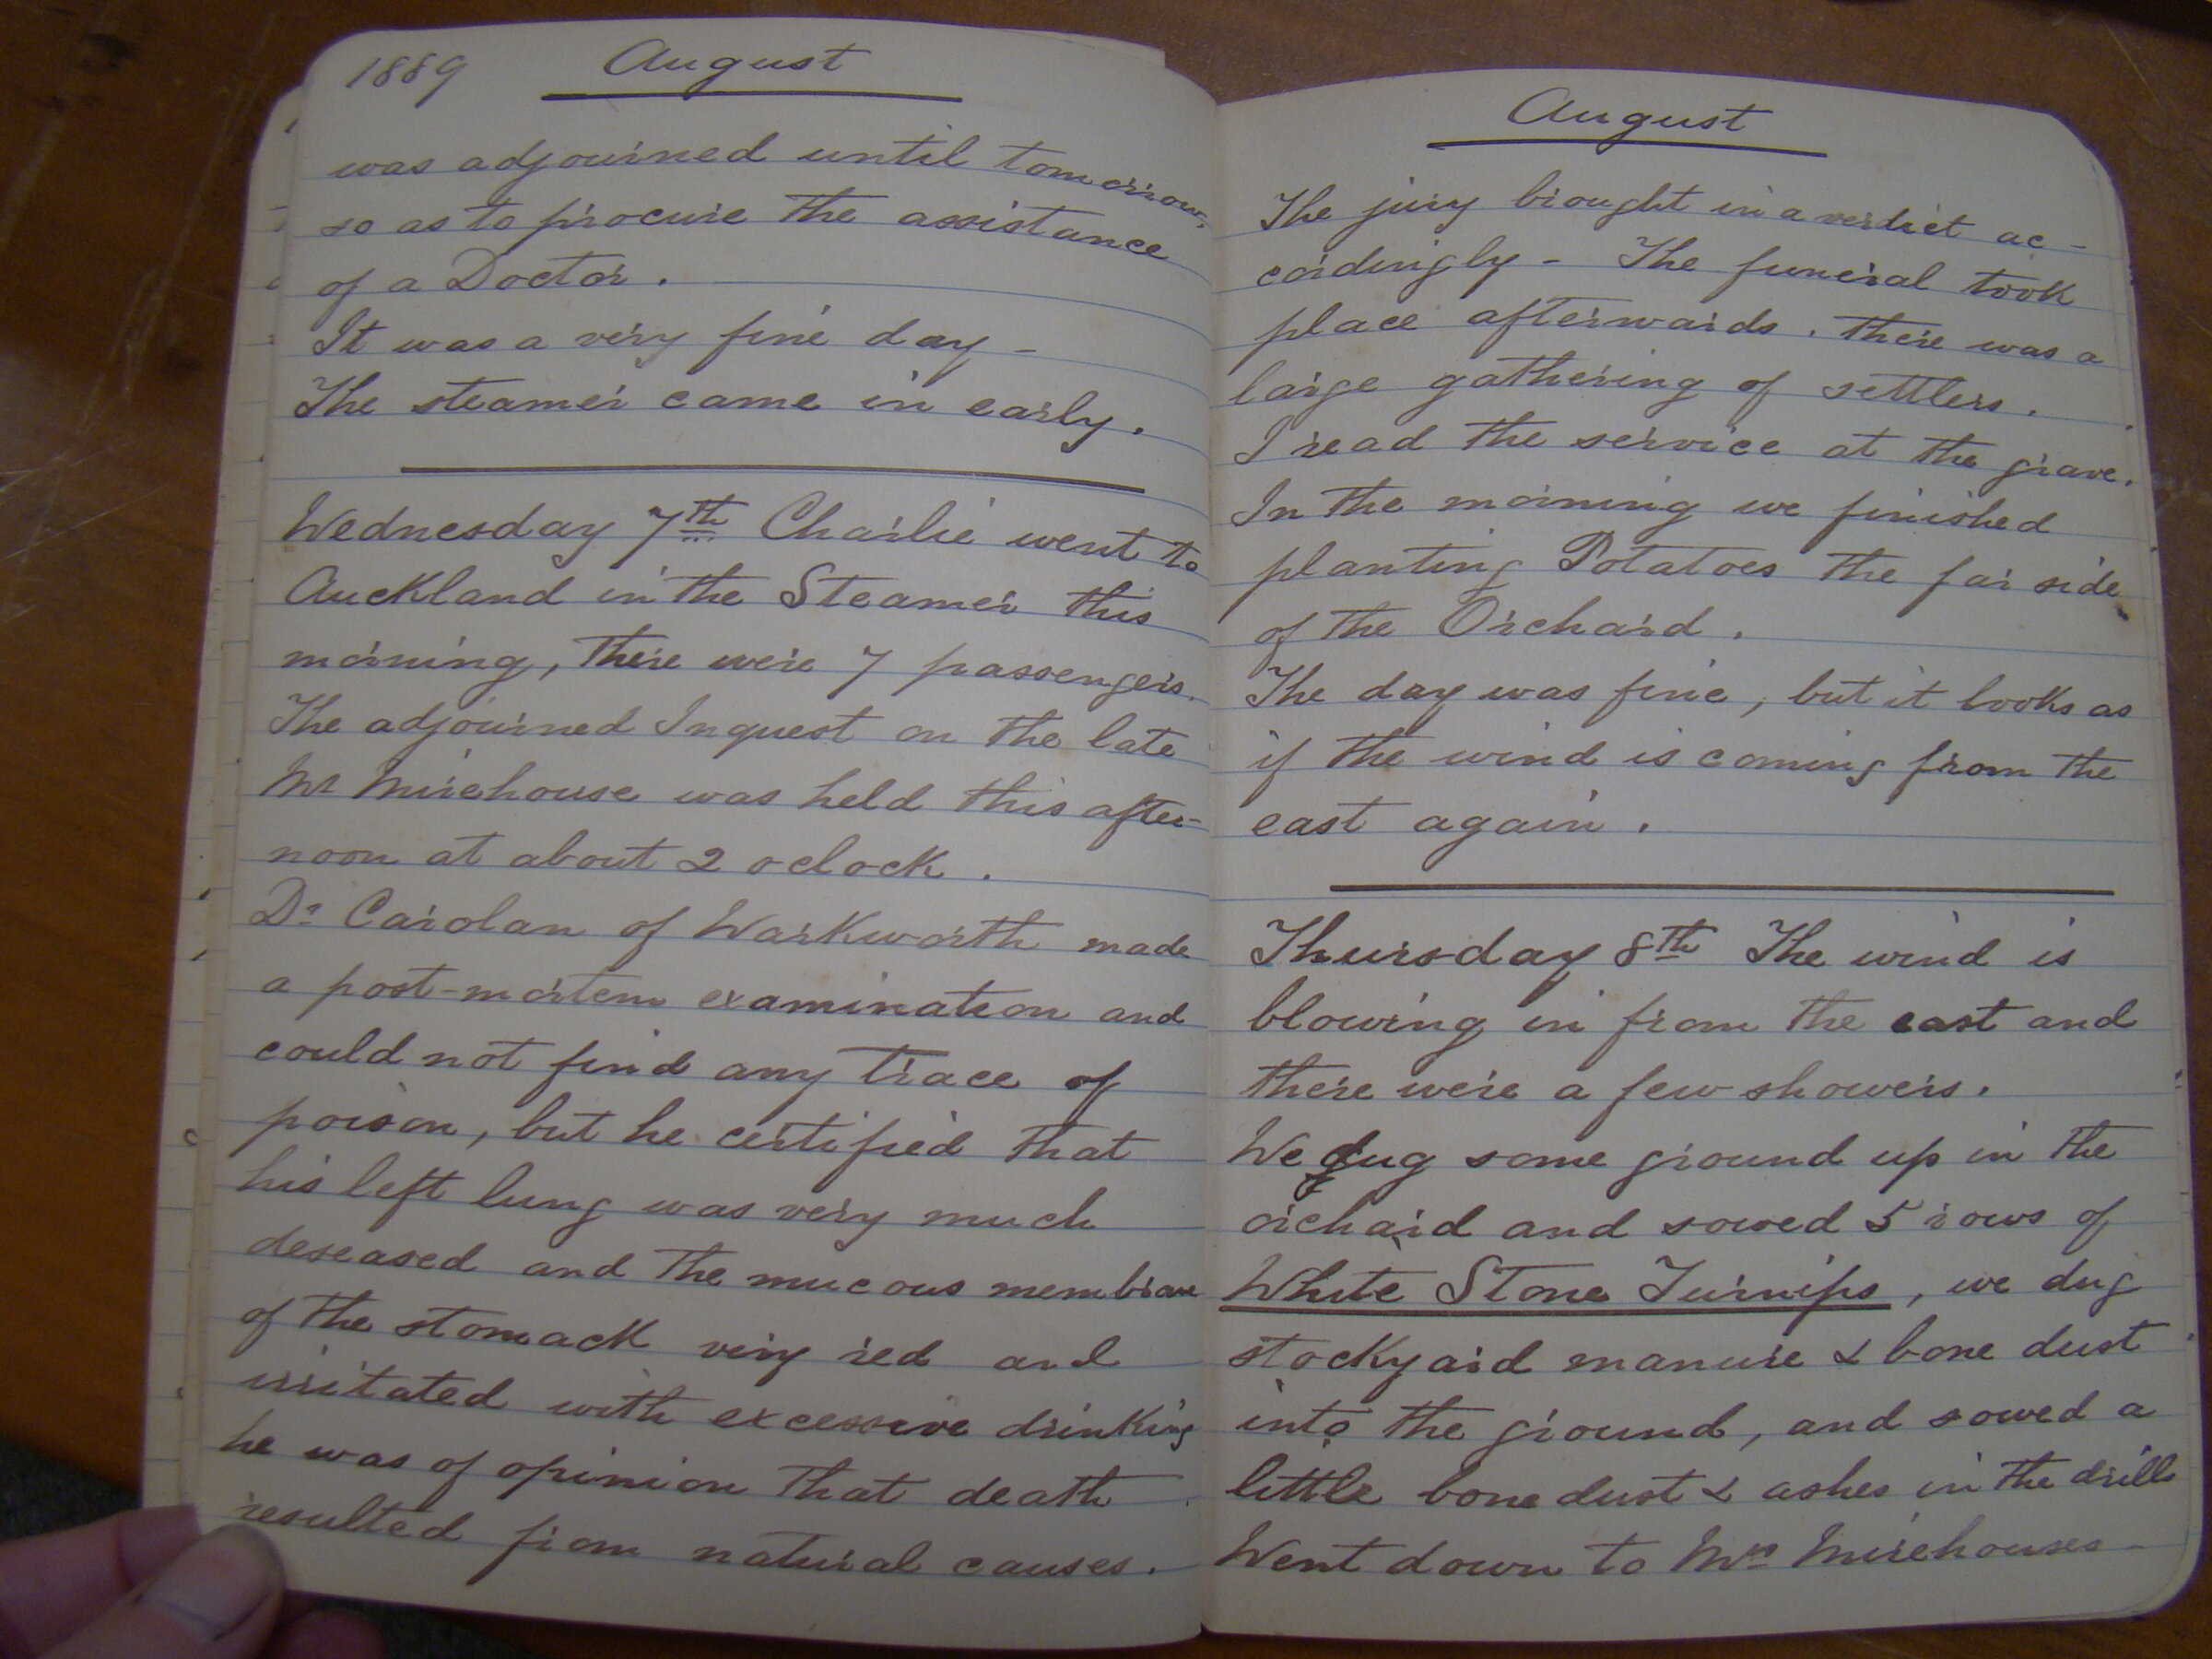 1889 August
was adjourned until tomorrow,
so as to procure the assistance
of a Doctor.
It was a very fine day -
The steamer came in early.
Wednesday 7th Charlie went to
Auckland in the Steamer this
morning, there were 7 passengers.
The adjourned Inquest on the late
Mr Mirehouse was held this after-
noon at about 2 oclock.
Dr Carolan of Warkworth made
a post-mortem examination and
could not find any trace of
poison, but he certified that
his left lung was very much
deseased and the mucous membrane
of the stomack very red and
irritated with excessive drinking
he was of opinion that death
resulted from natural causes.
August
The jury brought in a verdict ac-
cordingly - The funeral took
place afterwards. there was a
large gathering of settlers.
I read the service at the grave.
In the morning we finished
planting Potatoes the far side
of the Orchard.
The day was fine, but it looks as
if the wind is coming from the
east again.
Thursday 8th The wind is
blowing in from the east and
there were a few showers.
We dug some ground up in the
orchard and sowed 5 rows of
White Stone Turnips, we dug
stockyard manure & bone dust
into the ground, and sowed a
little bone dust & ashes in the drills
Went down to Mrs Mirehouses -